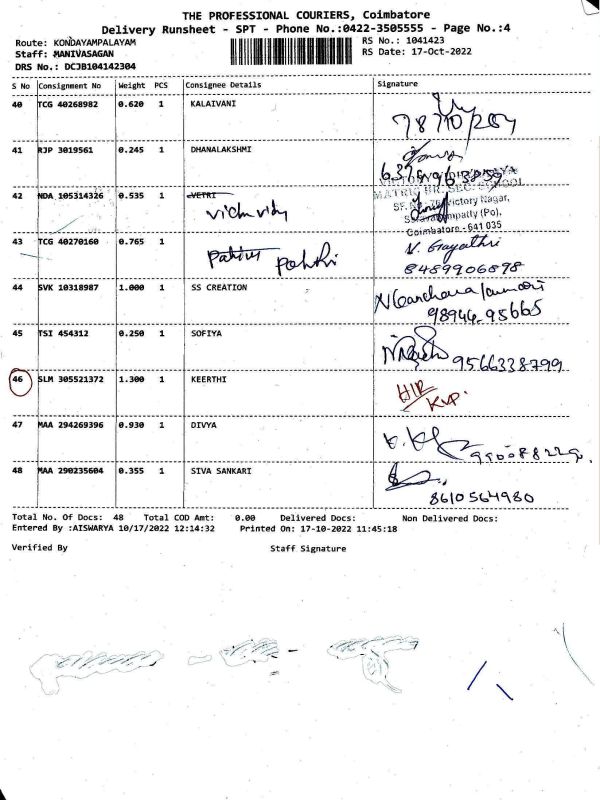 THE PROFESSIONAL COURIERS, Coimbatore
Delivery Runsheet - SPT - Phone No.:0422-3505555 - Page No.:4
Route: KONDAYAMPALAYAM
Staff: MANIVASAGAN
DRS No.: DCJB104142304
RS No.: 1041423
RS Date: 17-Oct-2022
S No Consignment No Weight PCS Consignee Details Signature
40 TCG 40268982 0.620 1 KALAIVANI
41 RJP 3019561 0.245 1 DHANALAKSHMI
42 NDA 105314326 0.535 1 VETRI
MATRIC HR. SEC. SCHOOL
Victory Nagar,
Coimbatore - 641 035
43 TCG 40270160 0.765 1
N. Gayathri
8489906898
44 SVK 10318987 1.000 1 SS CREATION
98944-95665
45 TSI 454312 0.250 1 SOFIYA
9566338799
46 SLM 305521372 1.300 1 KEERTHI
47 MAA 294269396 0.930 1 DIVYA
48 MAA 290235604 0.355 1 SIVA SANKARI
8610564980
Total No. Of Docs: 48 Total COD Amt: 0.00 Delivered Docs: Non Delivered Docs:
Entered By :AISWARYA 10/17/2022 12:14:32 Printed On: 17-10-2022 11:45:18
Verified By Staff Signature